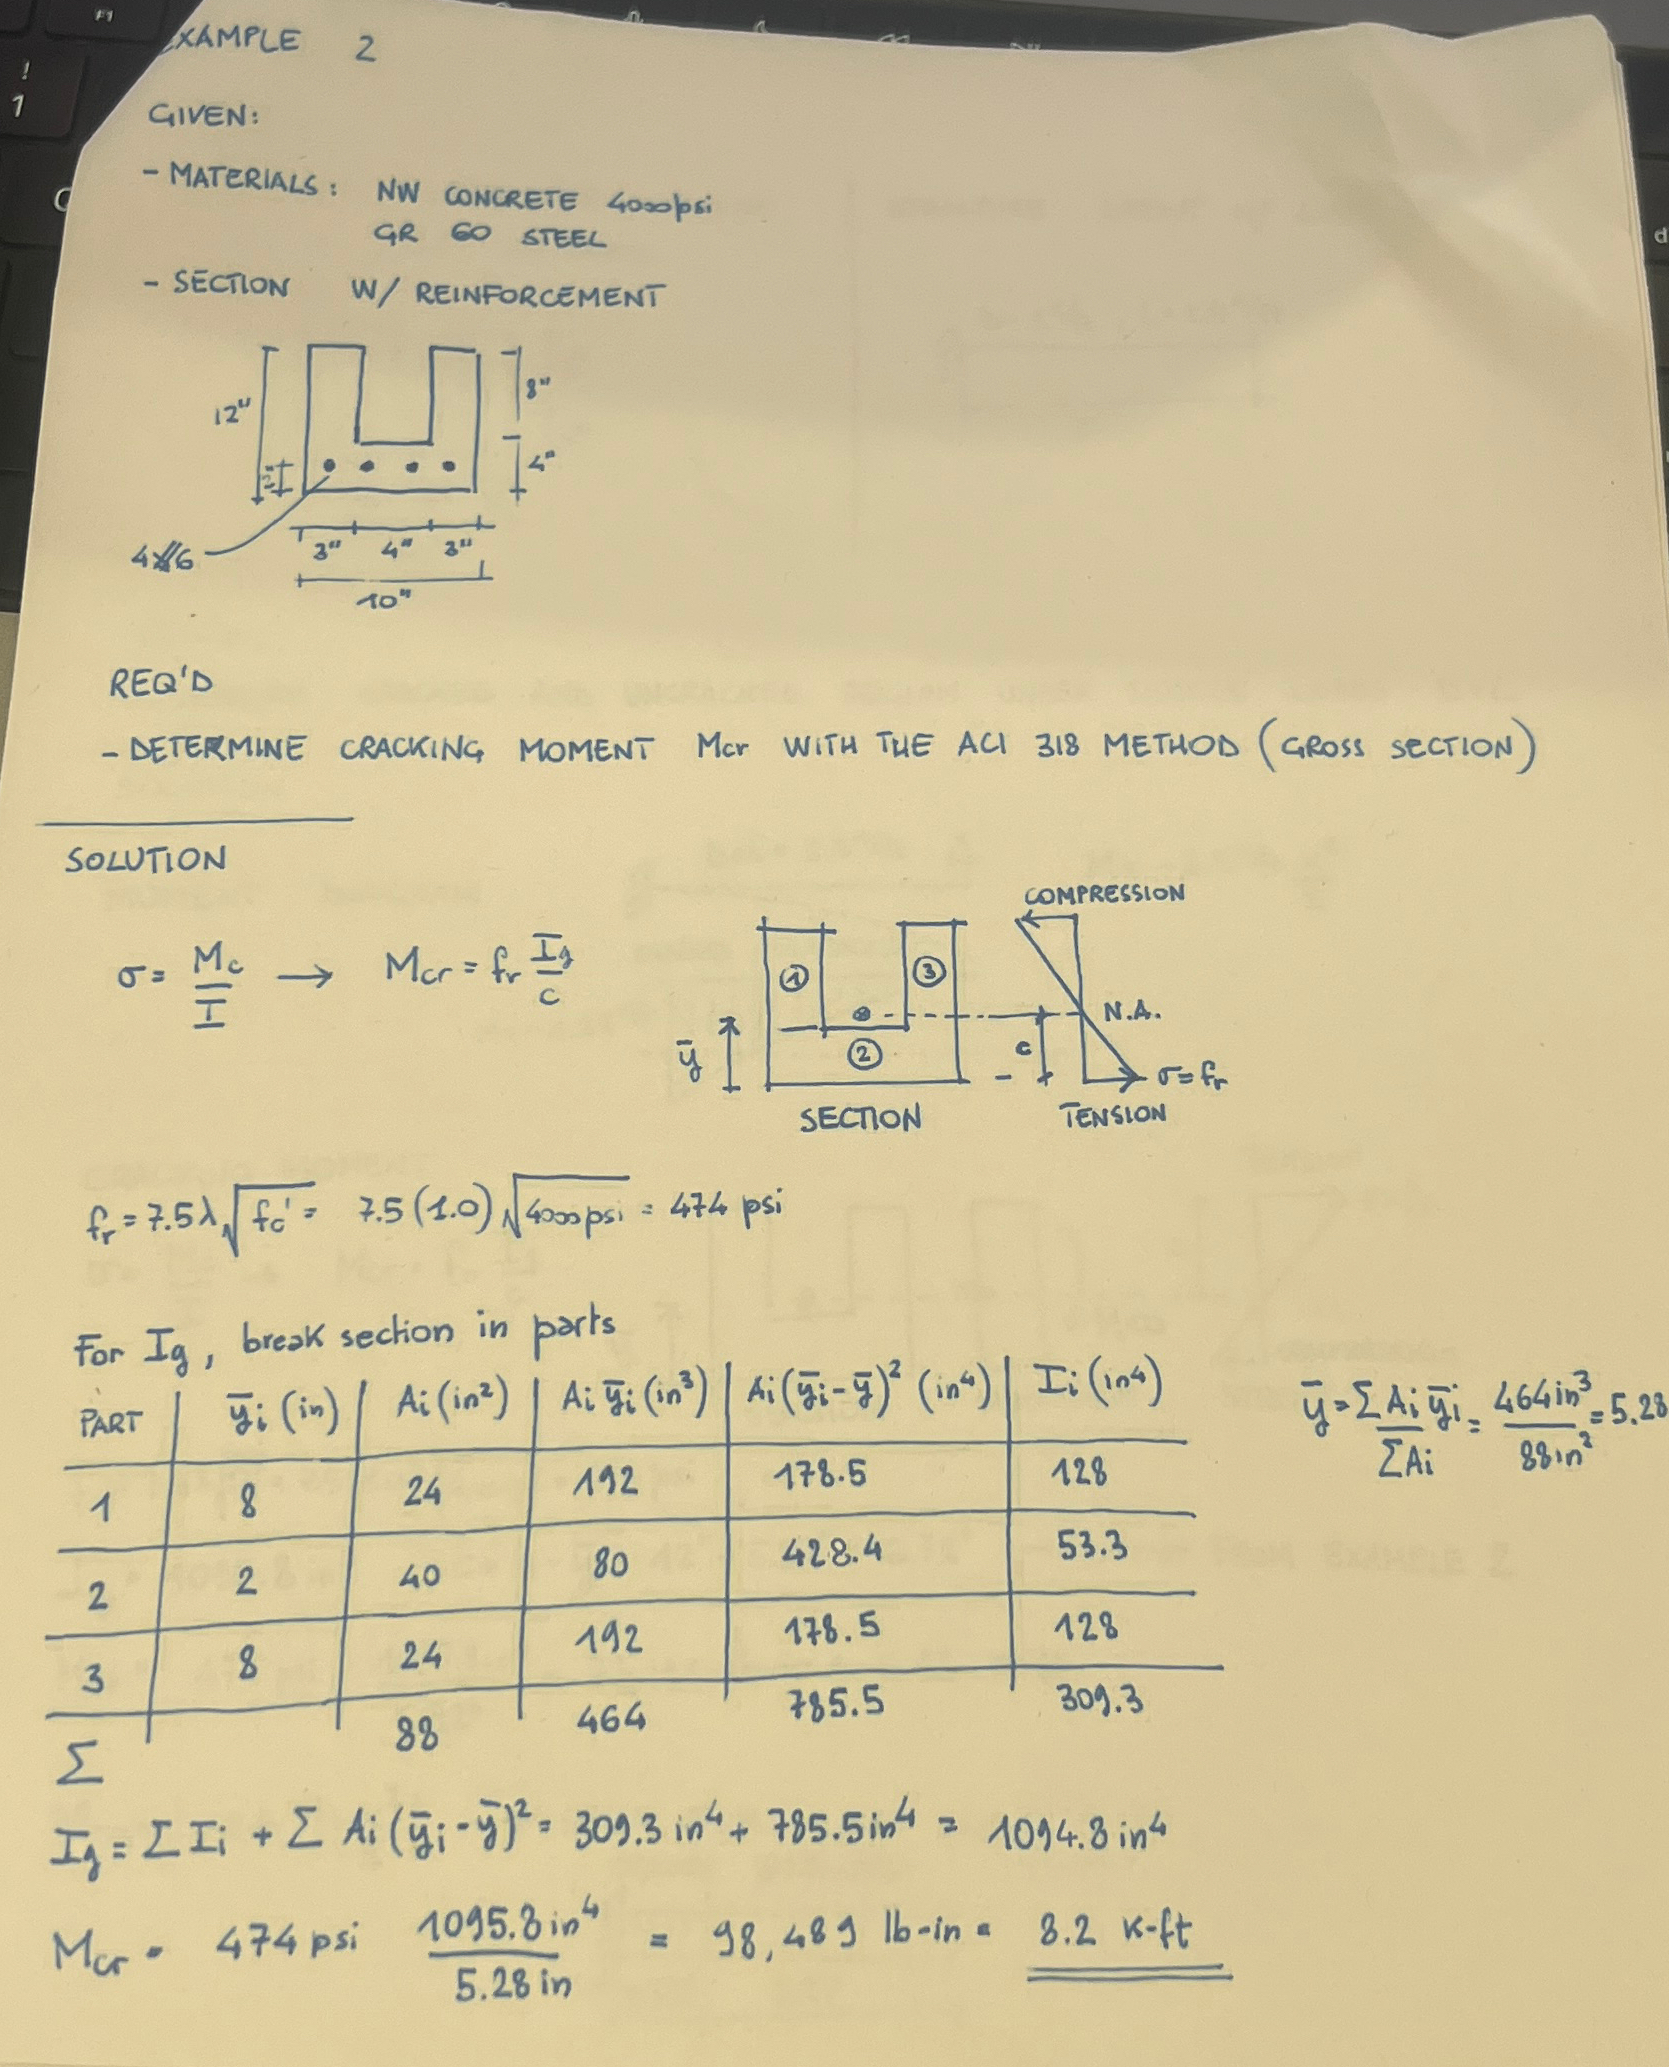 EXAMPLE 2
GIVEN:
- MATERIALS: NW CONCRETE 4000psi
GR 60 STEEL
- SECTION W/ REINFORCEMENT
12"
8"
4"
2"
4#6
3" 4" 3"
10"
REQ'D
- DETERMINE CRACKING MOMENT Mcr WITH THE ACI 318 METHOD (GROSS SECTION)
SOLUTION
σ = Mc/I → Mcr = fr Ig/c
COMPRESSION
1 3
N.A.
ȳ 2 c
σ = fr
SECTION TENSION
fr = 7.5λ√fc' = 7.5(1.0)√4000psi = 474 psi
For Ig, break section in parts
PART ȳi (in) Ai (in²) Ai ȳi (in³) Ai(ȳi-ȳ)² (in⁴) Ii (in⁴)
ȳ = ΣAi ȳi/ΣAi = 464in³/88in² = 5.28
1 8 24 192 178.5 128
2 2 40 80 428.4 53.3
3 8 24 192 178.5 128
Σ 88 464 785.5 309.3
Ig = ΣIi + Σ Ai(ȳi-ȳ)² = 309.3 in⁴ + 785.5in⁴ = 1094.8 in⁴
Mcr = 474 psi 1095.8 in⁴/5.28 in = 98,489 lb-in = 8.2 K-ft